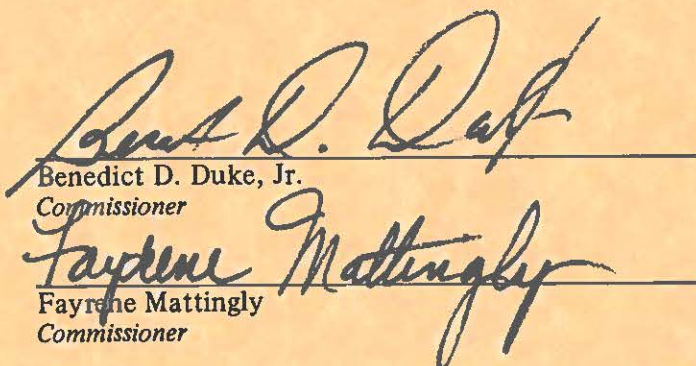 Benedict D. Duke, Jr.
Commissioner
Fayrene Mattingly
Fayrene Mattingly
Commissioner